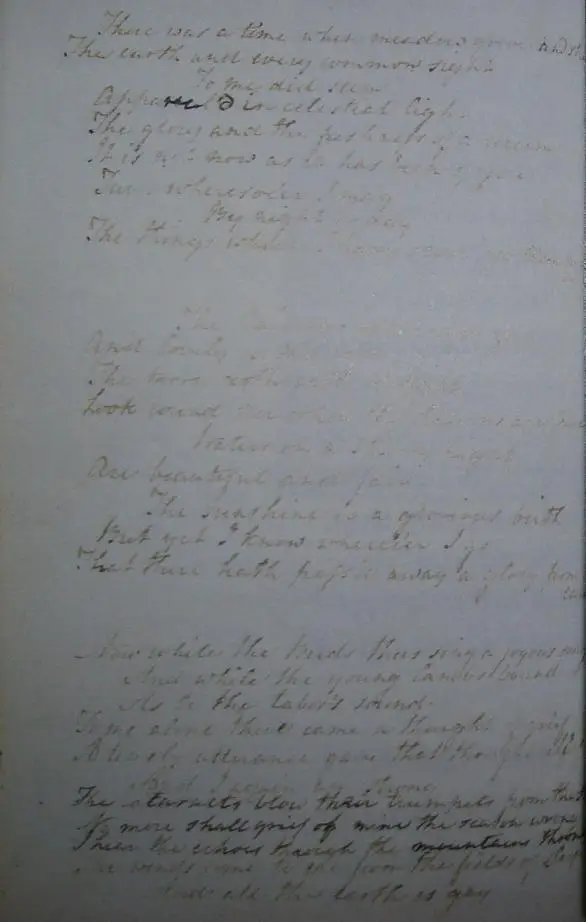 There was a time when meadow grove and
The earth and every common sight
To me did seem
Apparel'd in celestial light.
The glory and the freshness of a dream
It is not now as it has been of yore
Turn wheresoe'er I may
By night or day
The things which I have seen
The
And lovely is
The moon doth with delight
Look round her when the heavens are
Waters on a starry night
Are beautiful and fair
The sunshine is a glorious birth
But yet I know where'er I go
That there hath pass'd away a glory from
Now while the Birds thus sing a joyous
And while the young lambs bound
As to the tabor's sound.
To me alone there came a thought of grief
A timely utterance gave that thought
And I again am strong
The cataracts blow their trumpets from the
No more shall grief of mine the season wrong
I hear the echoes through the mountains throng
The winds come to me from the fields of
And all the earth is gay